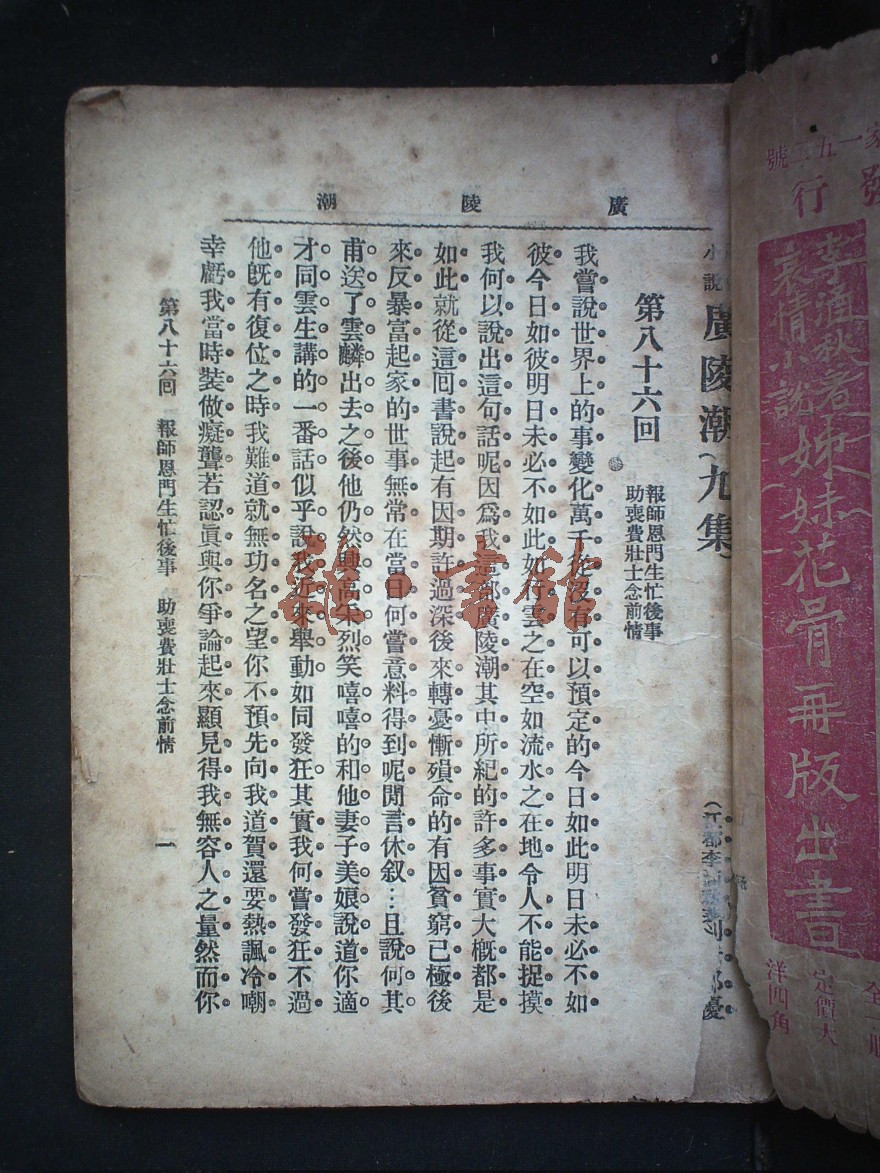 廣陵潮
小說 廣陵潮(九集)
第八十六回 報師恩門生忙後事 助喪費壯士念前情
我嘗說世界上的事變化萬千從沒有可以預定的今日如此明日未必不如
彼今日如彼明日未必不如此如行雲之在空如流水之在地令人不能捉摸
我何以說出這句話呢因爲我這部廣陵潮其中所紀的許多事實大概都是
如此就從這囘書說起有因期許過深後來轉憂慚殞命的有因貧窮已極後
來反暴富起家的世事無常在當日何嘗意料得到呢閒言休叙⋯且說何其
甫送了雲麟出去之後他仍然興高采烈笑嘻嘻的和他妻子美娘說道你適
才同雲生講的一番話似乎說我近來舉動如同發狂其實我何嘗發狂不過
他旣有復位之時我難道就無功名之望你不預先向我道賀還要熱諷冷嘲
幸虧我當時裝做癡聾若認眞與你爭論起來顯見得我無容人之量然而你
第八十六回 報師恩門生忙後事 助喪費壯士念前情 一
雜·書館
一五二號
發行
李涵秋著
哀情小說
姊妹花骨再版出書
定價大
洋四角